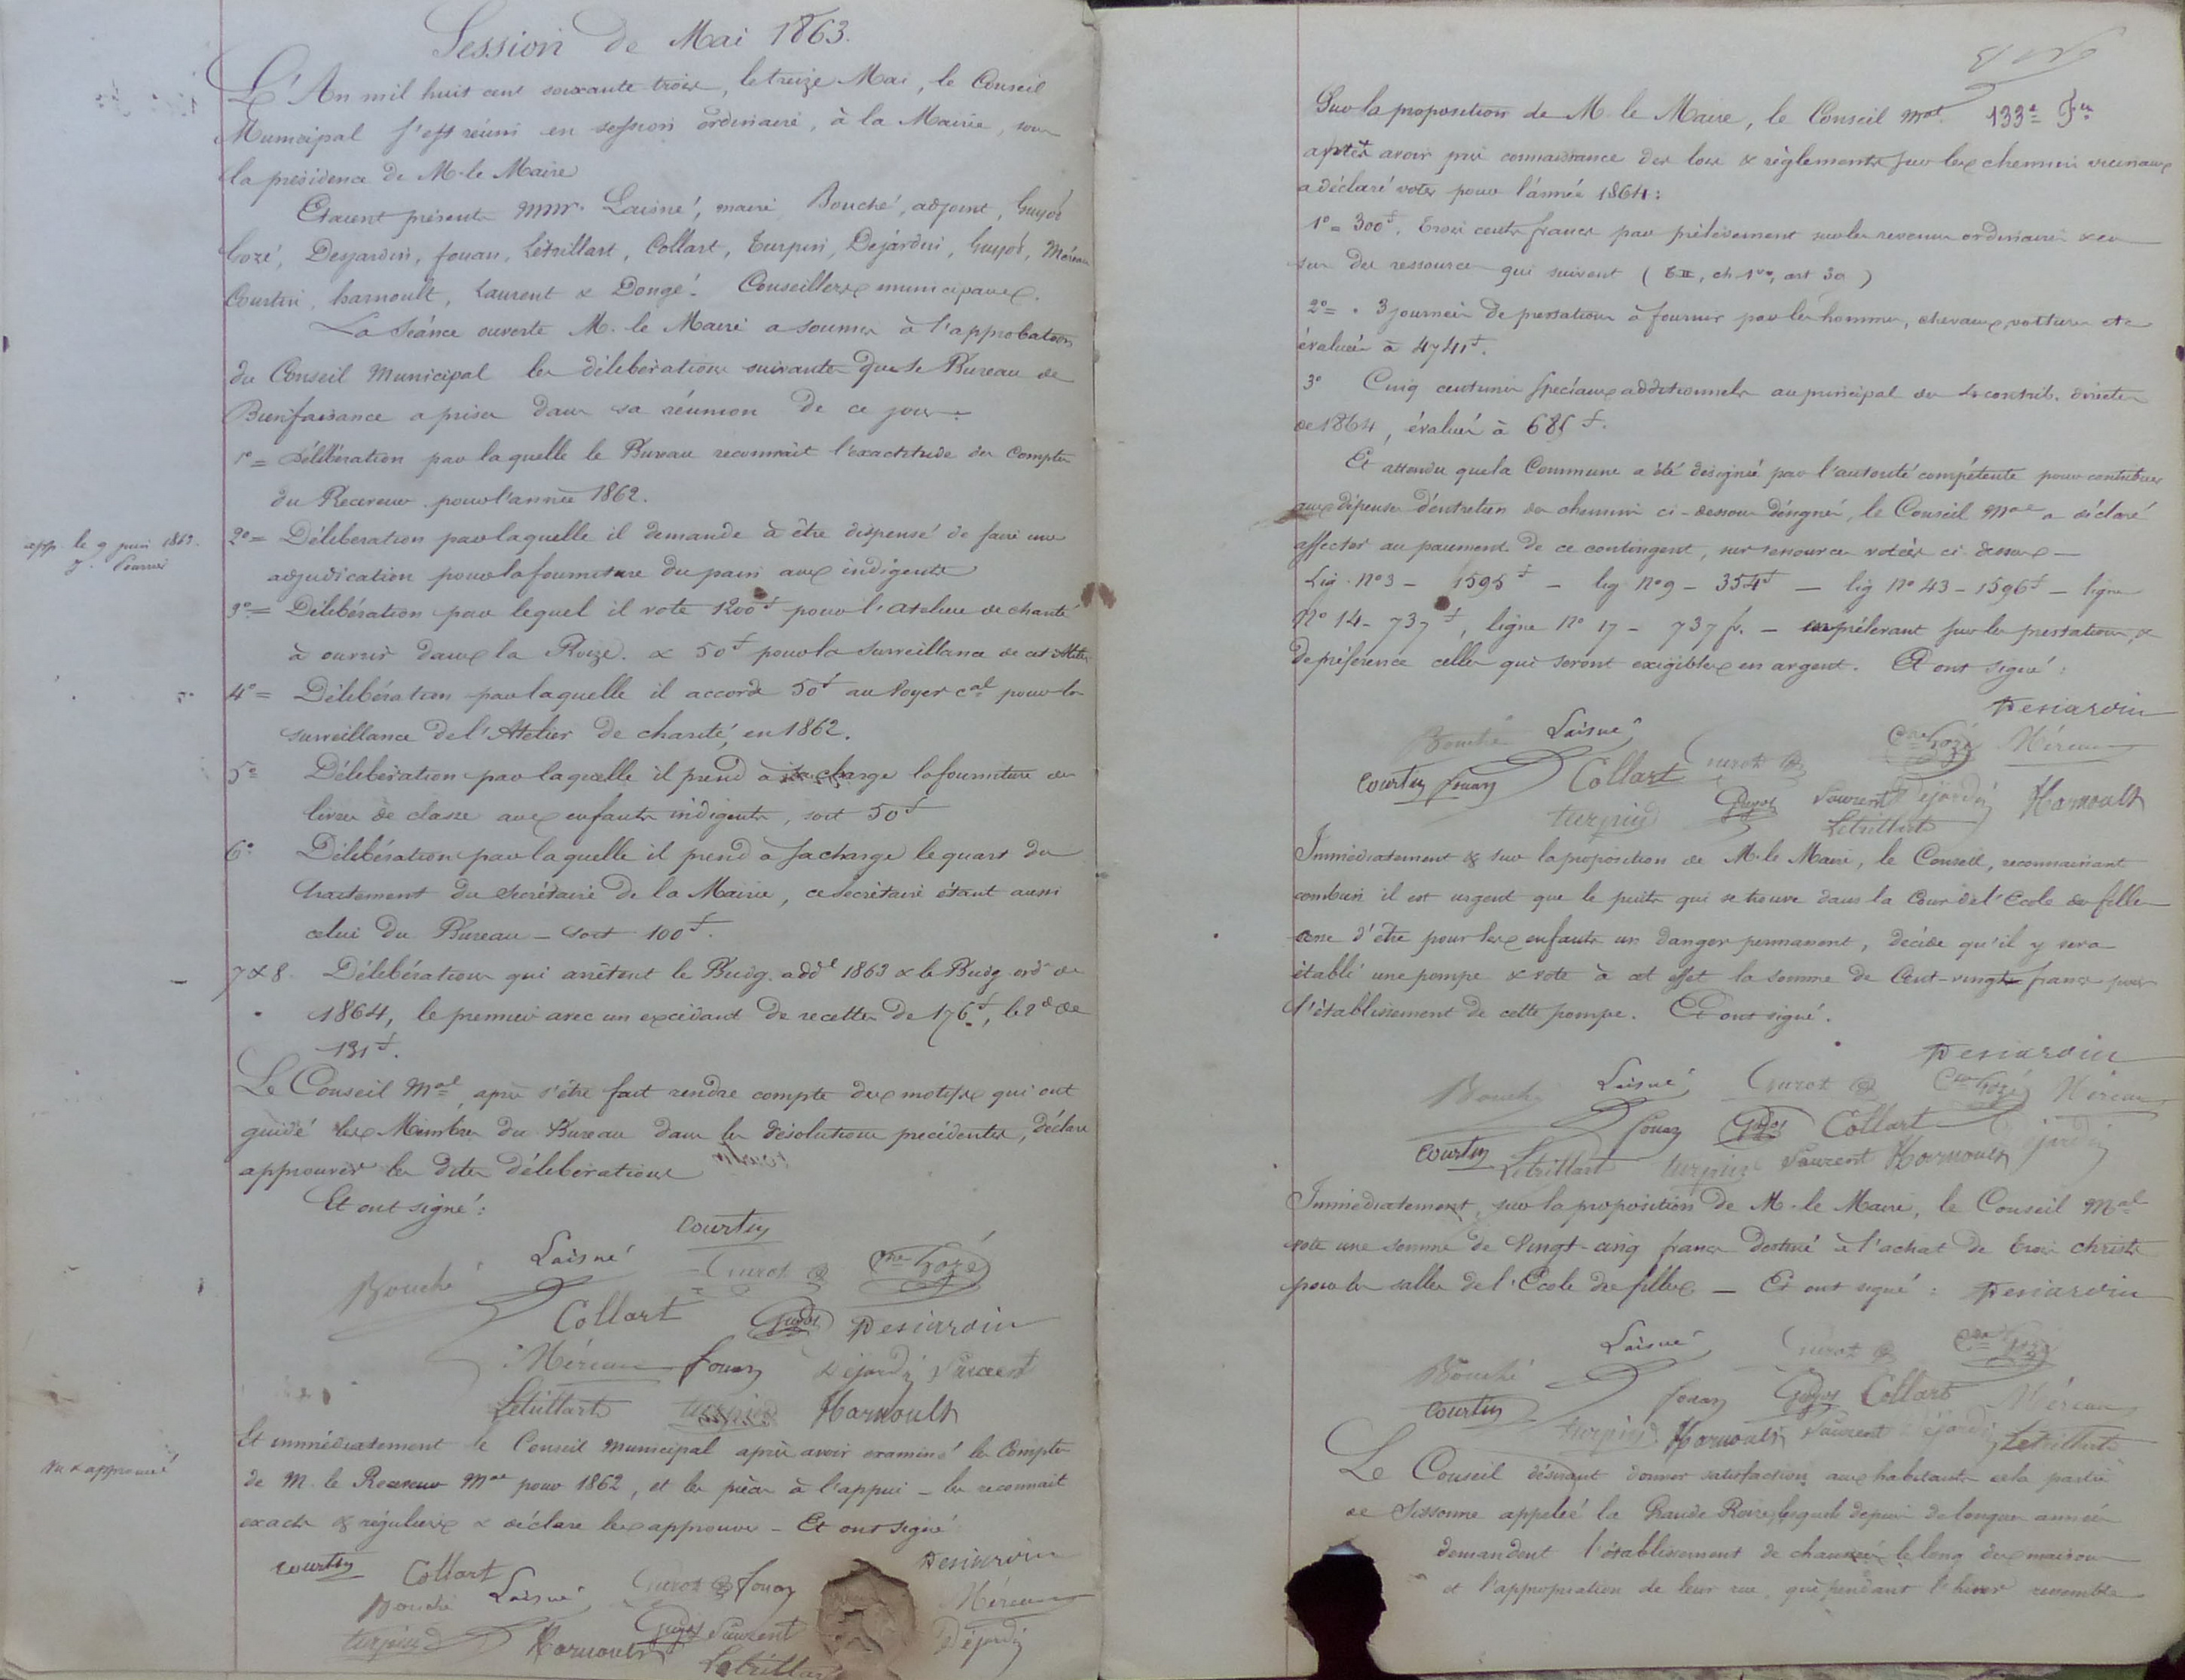 Session de Mai 1863.
L'An mil huit cent soixante trois, le treize Mai, le Conseil
Municipal s'est réuni en session ordinaire, à la Mairie, sous
la présidence de M. le Maire
Etaient présents MMrs. Laisné, maire, Bouché, adjoint, Guyot
Gozé, Desjardin, fouan, Létrillart, Collart, Turpin, Dejardin, Guyot, Méreau
Courtin, harnoult, Laurent & Dongé. Conseillers municipaux.
La Séance ouverte M. le Maire a soumis à l'approbation
du Conseil Municipal les délibérations suivantes que le Bureau de
Bienfaisance a prises dans sa réunion de ce jour.
1º = Délibération par laquelle le Bureau reconnaît l'exactitude des Comptes
du Receveur pour l'année 1862.
app. le 9 juin 1863.
2º = Délibération par laquelle il demande à être dispensé de faire une
adjudication pour la fourniture du pain aux indigents
3º = Délibération par lequel il vote 1200 f pour l'atelier de charité
à ouvrir dans la Roize. & 50 f pour la surveillance de cet Atelier
4º = Délibération par laquelle il accorde 50 f au Voyer cal pour la
surveillance de l'Atelier de charité, en 1862.
5º Délibération par laquelle il prend à sa charge la fourniture des
livres de classe aux enfants indigents, soit 50 f
6º Délibération par laquelle il prend à sa charge le quart du
traitement du Secrétaire de la Mairie, ce secrétaire étant aussi
celui du Bureau – soit 100 f.
7 & 8. Délibérations qui arrêtent le Budg. addl 1863 & le Budg. ord. de
1864, le premier avec un excédant de recettes de 176 f, le 2d de
131 f.
Le Conseil Mal, après s'être fait rendre compte des motifs qui ont
guidé les Membres du Bureau dans les résolutions précédentes, déclare
approuver les dites délibérations
Et ont signé :
Courtin
Bouché Laisné Guyot Gozé
Collart Guyot Desjardin
Méreau fouan Dejardin Laurent
Letrillart turpin Harnoult
Vu & approuvé
Et immédiatement le Conseil Municipal après avoir examiné les Comptes
de M. le Receveur Mal pour 1862, et les pièces à l'appui – les reconnait
exacts & réguliers & déclare les approuver – Et ont signé
Courtin Collart Laisné Guyot fouan Desjardin
Bouché Méreau
turpin Harnoult Guyot Laurent Déjardin
Letrillart
133e Fet
Sur la proposition de M. le Maire, le Conseil Mal.
après avoir pris connaissance des lois & règlements sur les chemins vicinaux
a déclaré voter pour l'année 1864 :
1º = 300 f. Trois cents francs par prélèvement sur les revenus ordinaires & en
sus des ressources qui suivent ( T II, ch. 1er, art 30 )
2º = 3 journées de prestations à fournir par les hommes, chevaux, voitures etc
évaluées à 4741 f.
3º Cinq centimes spéciaux additionnels au principal des 4 contrib. directes
de 1864, évalués à 685 f.
Et attendu que la Commune a été désignée par l'autorité compétente pour contribuer
aux dépenses d'entretien des chemins ci-dessous désignés, le Conseil Mal a déclaré
affecter au paiement de ce contingent, sur ressources votées ci dessus –
Lig. nº 3 – 1595 f – lig nº 9 – 354 f – lig nº 43 – 1596 f – ligne
Nº 14 – 737 f, ligne nº 17 – 737 fr. – en prélevant sur les prestations, &
de préférence celles qui seront exigibles en argent. Et ont signé :
Desjardin
Bouché Laisné Guyot Gozé Méreau
Courtin fouan Collart Guyot Laurent Dejardin Harnoult
turpin Letrillart
Immédiatement & sur la proposition de M. le Maire, le Conseil, reconnaissant
combien il est urgent que le puits qui se trouve dans la Cour de l'Ecole des filles
cesse d'être pour les enfants un danger permanent, décide qu'il y sera
établi une pompe & vote à cet effet la somme de Cent-vingt francs pour
l'établissement de cette pompe. Et ont signé.
Desjardin
Bouché Laisné Guyot Gozé Méreau
Courtin fouan Guyot Collart Dejardin
Letrillart turpin Laurent Harnoult
Immédiatement, sur la proposition de M. le Maire, le Conseil Mal
vote une somme de Vingt-cinq francs destinée à l'achat de trois christs
pour les salles de l'Ecole des filles – Et ont signé : Desjardin
Bouché Laisné Guyot Gozé
Courtin fouan Guyot Collart Méreau
turpin Harnoult Laurent Dejardin Letrillart
Le Conseil désirant donner satisfaction aux habitants de la partie
de Sissonne appelée la Grande Roize, lesquels depuis de longues années
demandent l'établissement de chaussée le long des maisons
et l'appropriation de leur rue, qui pendant l'hiver ressemble